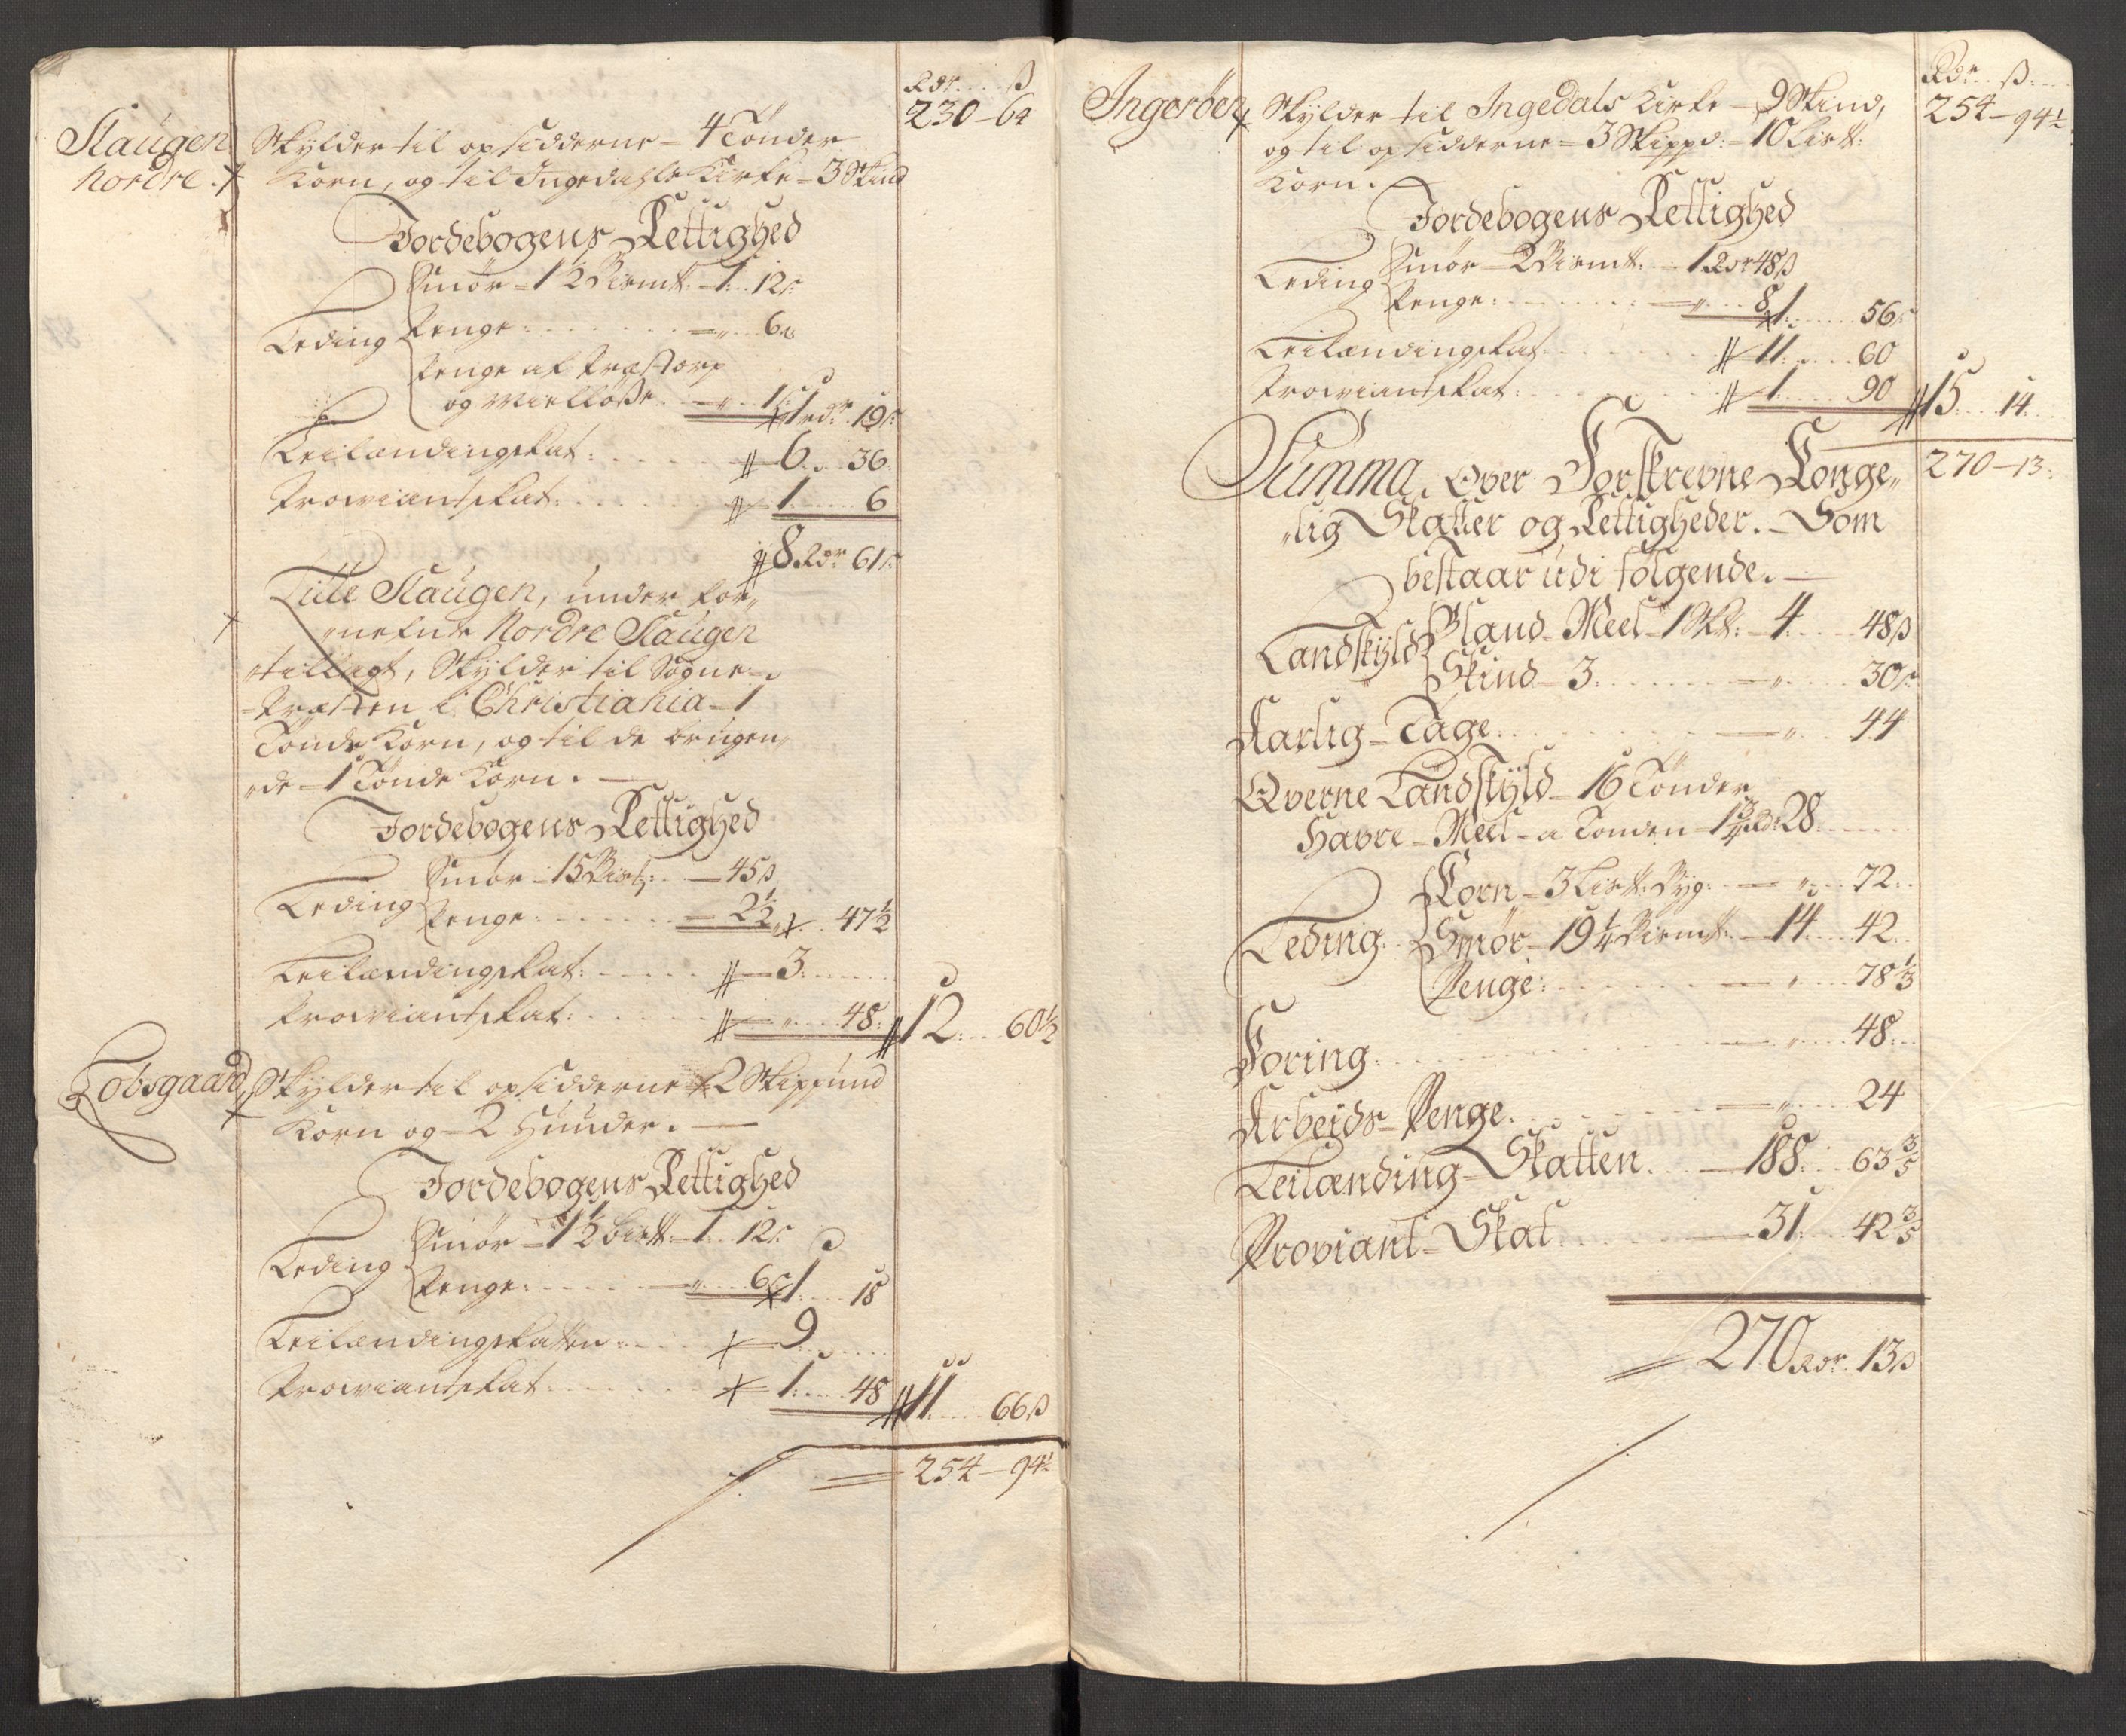 Rdr. ß
230–64
Slaugen
Nordre.
Skylder til opsidderne – 4 Tønder
Korn, og til Ingedahls Kirke – 3 Skind
Jordebogens Rettighed
Leding
Smør – 1½ Bismt: – 1. 12ß
Penge: – „ 6ß
Penge af Præstorp
og Wielløße. – „ 1ß
1 rdr. 19ß
Leilændingskat: 6. 36.
Proviantskat: 1. 6
8 Rdr 61ß
Lille Slaugen, under for„
„nefnde Nordre Slaugen
tillagt, Skylder til Sogne-
Præsten i Christiania – 1
Tønde Korn, og til de brugen„
„de – 1 Tønde Korn.
Jordebogens Rettighed
Leding
Smør – 15 – 45ß
Penge: – 2½ 47½
Leilændingskat: – 3.
Proviantskat: – „ 48: 12. 60½
Lobsgaard,
Skylder til opsidderne 2 Skippund
Korn og – 2 Huuder.
Jordebogens Rettighed
Leding
Smør – 1½ Bismt: – 1. 12ß
Penge: – „ 6ß 1. 18
Leilændingskatten: 9
Proviantskat. 1. 48 11. 66ß
254–94½
Rdr. ß.
254–94½
Ingerøen,
Skylder til Ingedals Kirke – 9 Skind,
og til opsidderne – 3 Skippd: – 10 List:
Korn.
Jordebogens Rettighed
Leding
Smør – 2 Bismt. – 1 Rdr 48ß
Penge: – „ 8 1. 56ß
Leilændingskat. 11. 60
Proviantskat: 1. 90 15. 14.
Summa Over Forskrevne Konge„
„lig Skatter og Rettigheder. Som
bestaar udi følgende.
270–13.
Landskyld
Bland-Meel – 1 Skt: 4. 48ß
Skind – 3. – „ 30ß
Aarlig-Tage. – „ 44
Qverne Landskyld – 16 Tønder
Havre-Meel – a Tønden – 1¾ Rd 28.
Leding
Korn – 3 List: Byg: – „ 72.
Smør – 19¼ Bismt: – 14. 42.
Penge: – „ 78⅓
Foring. – „ 48.
Arbeids-Penge. – „ 24
Leilænding-Skatten. – 188. 63⅗
Proviant-Skat. – 31. 42⅗
270 Rdr. 13ß